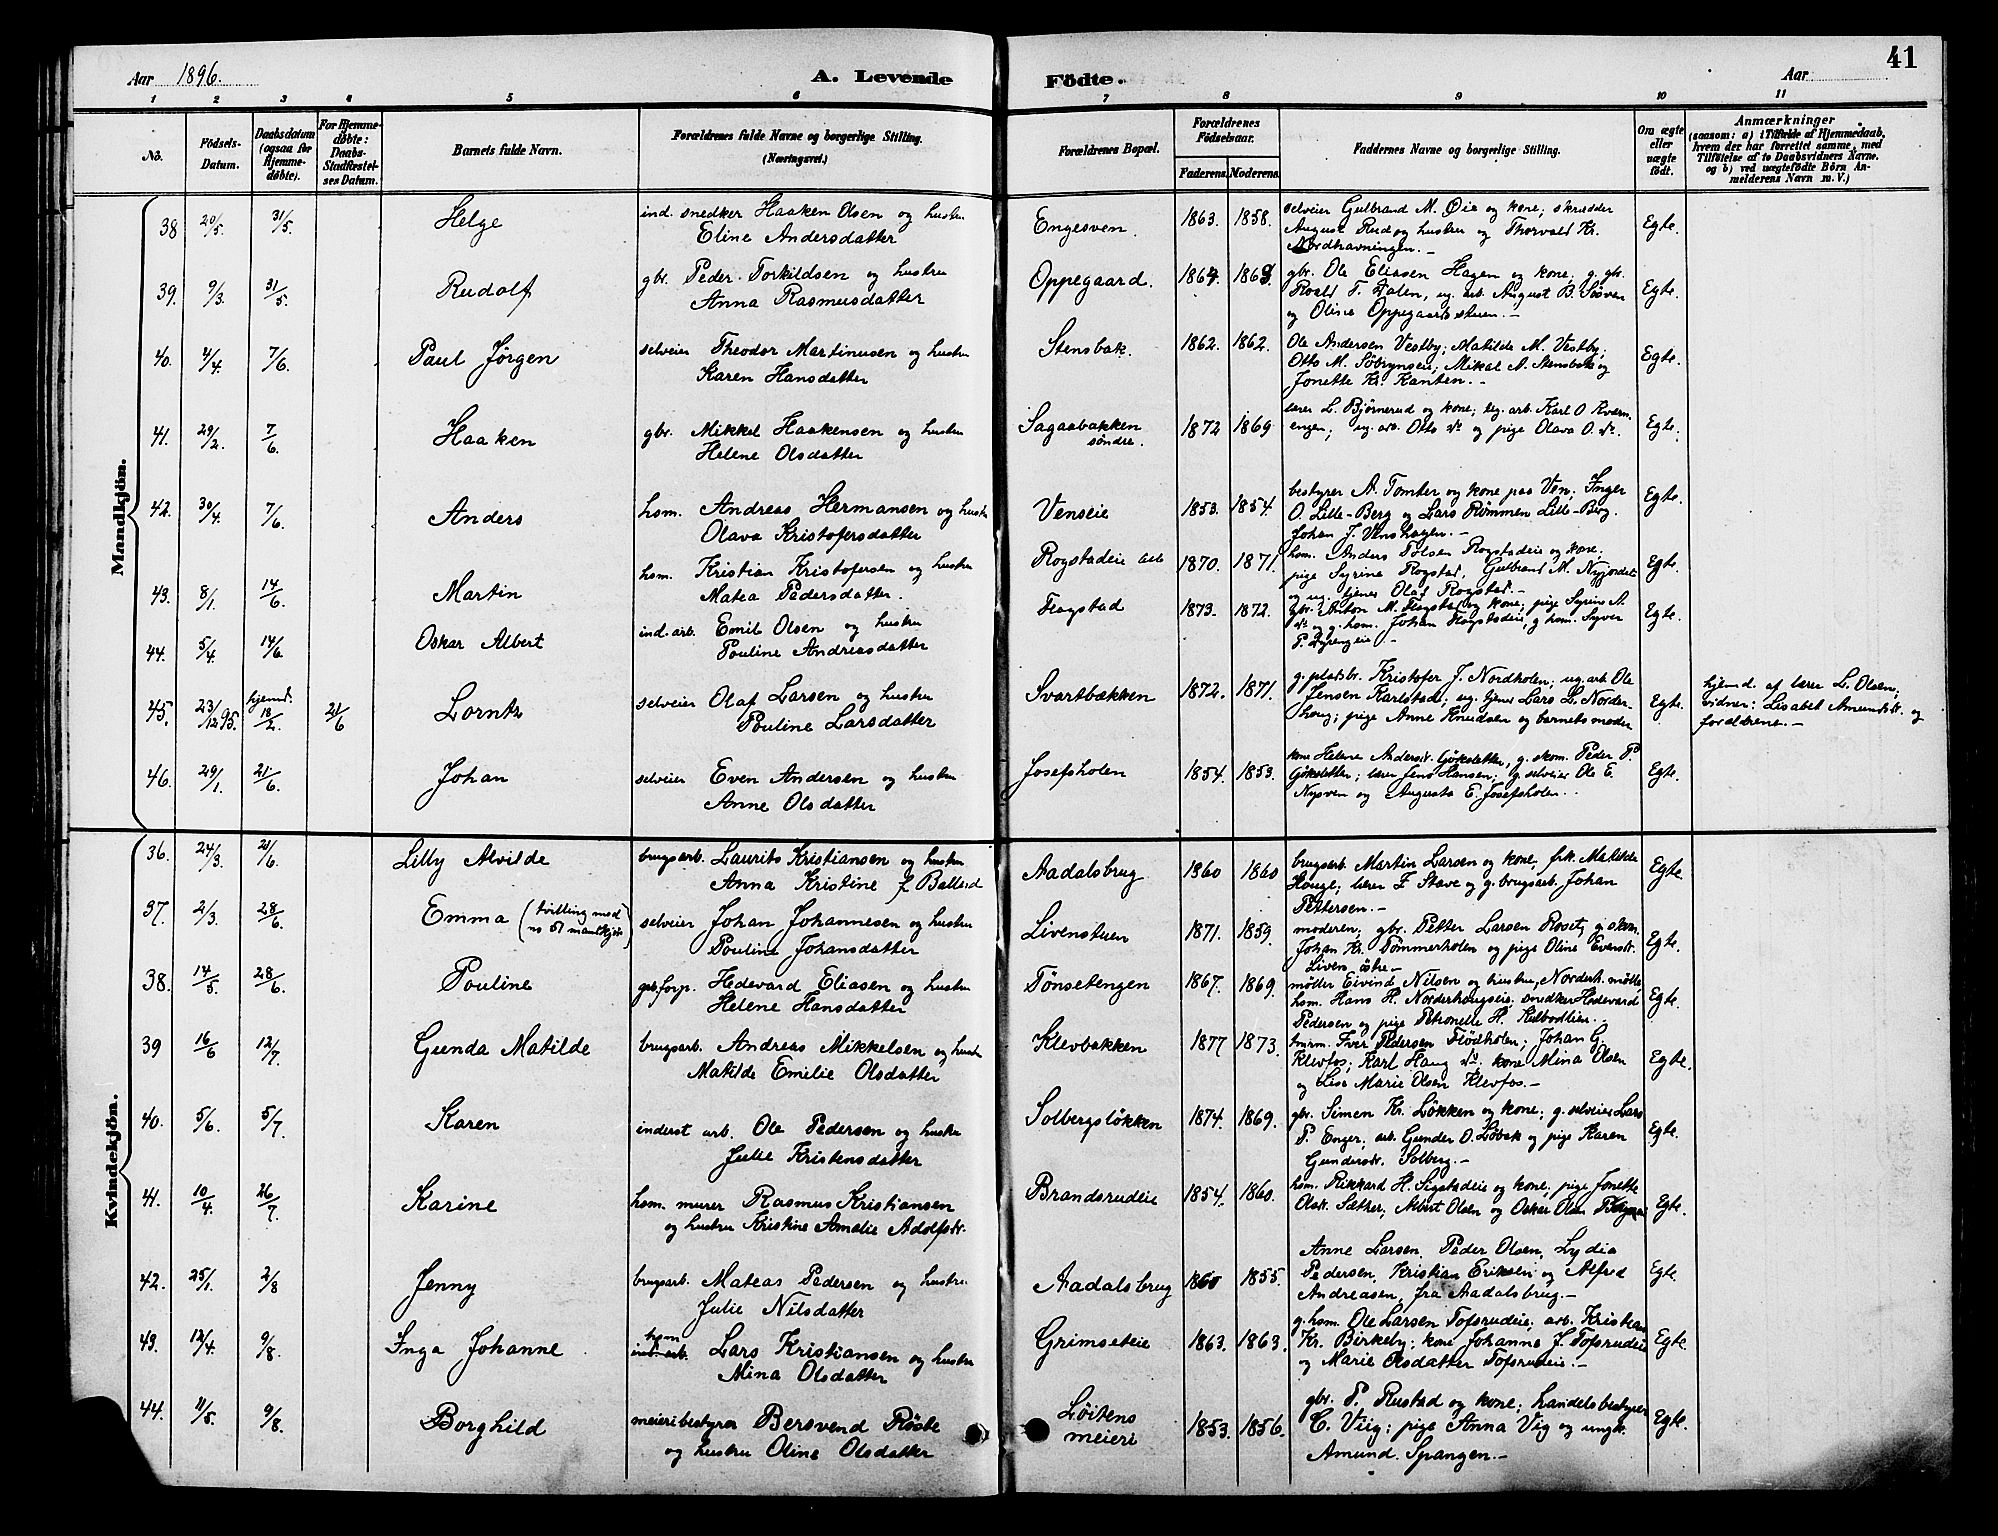 41
Aar 1896.
A. Levende Födte.
Aar
1 2 3 4 5 6 7 8 9 10 11
No.
Födsels-Datum.
Daabsdatum (ogsaa for Hjemme-döbte).
For Hjemme-döbte: Daabs-Stadfæstel-ses Datum.
Barnets fulde Navn.
Forældrenes fulde Navne og borgerlige Stilling. (Næringsvei.)
Forældrenes Bopæl.
Forældrenes Födselsaar.
Faderens. Moderens.
Faddernes Navne og borgerlige Stilling.
Om ægte eller uægte födt.
Anmærkninger
(saasom: a) i Tilfælde af Hjemmedaab, hvem der har forrettet samme, med Tilföielse af to Daabsvidners Navne. og b) ved uægtefödte Börn An-melderens Navn m. V.)
Mandkjön.
38 20/5. 31/5. Helge ind. snedker Haaken Olsen og hustru
Eline Andersdatter
Engesven. 1863. 1858. selveier Gulbrand M. Øie og kone; skrædder
August Rud og hustru og Thorvald Kr.
Nordhavningen. — Egte.
39. 9/3. 31/5. Rudolf gbr. Peder Torkildsen og hustru
Anna Rasmusdatter
Oppegaard. 1864. 1868. gbr. Ole Eliasen Hagen og kone; g. gbr.
Roald T. Dalen, ug. arb. August B. Søsven
og Oline Oppegaardsstuen. — Egte.
40. 4/4. 7/6. Paul Jørgen selveier Theodor Martinusen og hustru
Karen Hansdatter
Stensbak. 1862. 1862. Ole Andersen Vestby; Matilde M. Vestby;
Otto M. Søbrynseie; Mikal A. Stensbak og
Jonette Kr. Kanten. — Egte.
41. 29/2. 7/6. Haaken gbr. Mikkel Haakensen og hustru
Helene Olsdatter
Sagaabakken søndre. 1872 1869. lærer L. Bjørnerud og kone; lig. arb. Karl O. Kværn-
engen; ug. arb. Otto do og pige Olava O. do. Egte.
42. 30/4. 7/6. Anders hsm. Andreas Hermansen og hustru
Olava Kristofersdatter
Venseie 1853. 1854. bestyrer A. Tomter og kone paa Ven; Inger
O. Lille-Berg og Lars Rømmen Lille-Berg.
Johan J. Venshagen. — Egte.
43. 8/1. 14/6. Martin hsm. Kristian Kristofersen og hustru
Matea Pedersdatter.
Rogstadeie 1870. 1871. hsm. Anders Tolsen Rogstadeie og kone;
pige Syrine Rogstad, Gulbrand M. Nygjordet
og ug. tjener Olaf Rogstad. — Egte.
44. 5/4. 14/6. Oskar Albert ind. arb. Emil Olsen og hustru
Pouline Andreasdatter
Flagstad 1873. 1872. gbr. Anton M. Flagstad og kone; pige Syrine A.
do og g. hsm. Johan Flagstadeie, g. hsm. Syver
P. Dyrengeie — Egte.
45. 23/12 95. hjemd. 18/2. 21/6 Lorntz selveier Olaf Larsen og hustru
Pouline Larsdatter
Svartbækken 1872. 1871. g. pladsbr. Kristofer J. Nordholen; ug. arb. Ole
Jensen Karlstad; ug. tjener Lars L. Norder-
houg; pige Anne Knudsen og barnets moder Egte.
hjemd. af lærer L. Olsen;
vidner: Lisabet Amundsdt. og
forældrene. —
46. 29/1. 21/6. Johan selveier Even Andersen og hustru
Anne Olsdatter
Josefsholen 1854. 1853. kone Helene Andersdt. Gökslette, g. skom. Peder P.
Gökslette; lærer Jens Hansen; g. selveier Ole E.
Nysven og Augusta E. Josefsholen. Egte.
Kvindekjön.
36. 24/3. 21/6. Lilly Alvilde brugsarb. Laurits Kristiansen og hustru
Anna Kristine f. Ballerud
Aadalsbrug 1860 1860 brugsarb. Martin Larsen og kone, frk. Matilde
Houge; lærer F. Stave og g. brugsarb. Johan
Pettersen. — Egte.
37. 2/3. 28/6. Emma (tvilling med no 51 mandkjøn) selveier Johan Johannesen og hustru
Pouline Johansdatter
Livenstuen 1871. 1859. moderen; gbr. Petter Larsen Roset; g. skom.
Johan Kr. Tømmerholen og pige Oline Evensdt.
Liven østre — Egte.
38. 14/5. 28/6. Pouline gbr. forp. Hedevard Eliasen og hustru
Helene Hansdatter
Tønsetengen 1867. 1869. møller Eivind Nilsen og hustru, Norderh. mølle
hsm. Hans H. Norderhougseie; snedker Hedevard
Pedersen og pige Petronelle H. Kulbodlien. Egte.
39 16/6 12/7. Gunda Matilde brugsarb. Andreas Mikkelsen og hustru
Matilde Emelie Olsdatter
Klevbakken 1877 1873. Iver Pedersen Flödholen; Johan G.
Klevfos; Karl Haug do. kone Mina Olsen
og Lise Marie Olsen Klevfos. — Egte.
40. 5/6. 5/7. Karen inderst arb. Ole Pedersen og hustru
Julie Kristensdatter
Solbergsløkken 1874. 1869. gbr. Simen Kr. Løkken og kone; g. selveier Lars
P. Enger; arb. Gunder O. Løbak og pige Karen
Gundersdt. Solberg. — Egte.
41. 10/4. 26/7. Karine hsm. murer Rasmus Kristiansen
og hustru Kristine Amalie Adolfsdt.
Brandsrudeie 1854. 1860. hsm. Rikkard H. Sigstadeie og kone, pige Jonette
Olsdt. Sæther; Albert Olsen og Oskar Olsen Egte.
42. 25/1. 2/8 Jenny brugsarb. Mateas Pedersen og hustru
Julie Nilsdatter
Aadalsbrug 1860 1855. Anne Larsen, Peder Olsen, Lydia
Pedersen, Kristian Eriksen og Alfred
Andreasen, fra Aadalsbrug. — Egte.
43. 12/4 9/8. Inga Johanne hsm ind. arb. Lars Kristiansen og hustru
Mina Olsdatter
Grimseteie 1863. 1863. g. hsm. Ole Larsen Tofsrudeie; arb. Kristian
Kr. Birkeby; kone Johanne J. Tofsrudeie
og Marie Olsdatter Tofsrudeie. — Egte
44. 11/5. 9/8. Borghild meieribestyrer Bersvend Røste
og hustru Oline Olsdatter
Løitens meieri 1853. 1856. gbr. P. Rustad og kone; handelsbestyrer
C. Viig; pige Anna Vig og ungk.
Amund Spangen. — Egte.